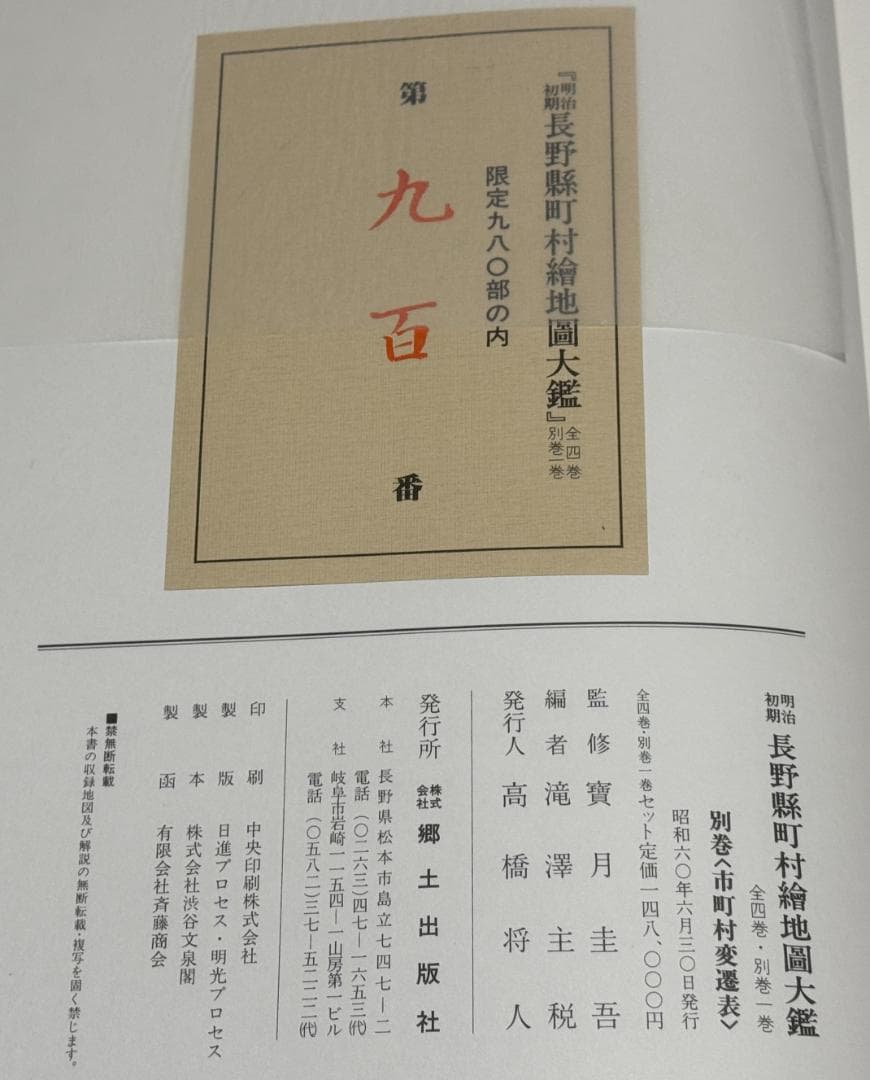 『明治初期長野縣町村繪地圖大鑑』全四巻別巻一巻
限定九八〇部の内
第九百番
明治初期長野縣町村繪地圖大鑑
全四巻・別巻一巻
別巻<市町村変遷表>
昭和六〇年六月三〇日発行
全四巻・別巻一巻セット定価一四八、〇〇〇円
監修 寶月圭吾
編者 滝澤主税
発行人 高橋将人
発行所 株式会社 郷土出版社
本社 長野県松本市島立七四七―二
電話(〇二六三)四七―一六五三(代)
支社 岐阜市岩崎一―一五四―一山房第一ビル
電話(〇五八二)三七―五二二二(代)
印刷 中央印刷株式会社
製版 日進プロセス・明光プロセス
製本 株式会社渋谷文泉閣
製函 有限会社斉藤商会
■禁無断転載
本書の収録地図及び解説の無断転載・複写を固く禁じます。